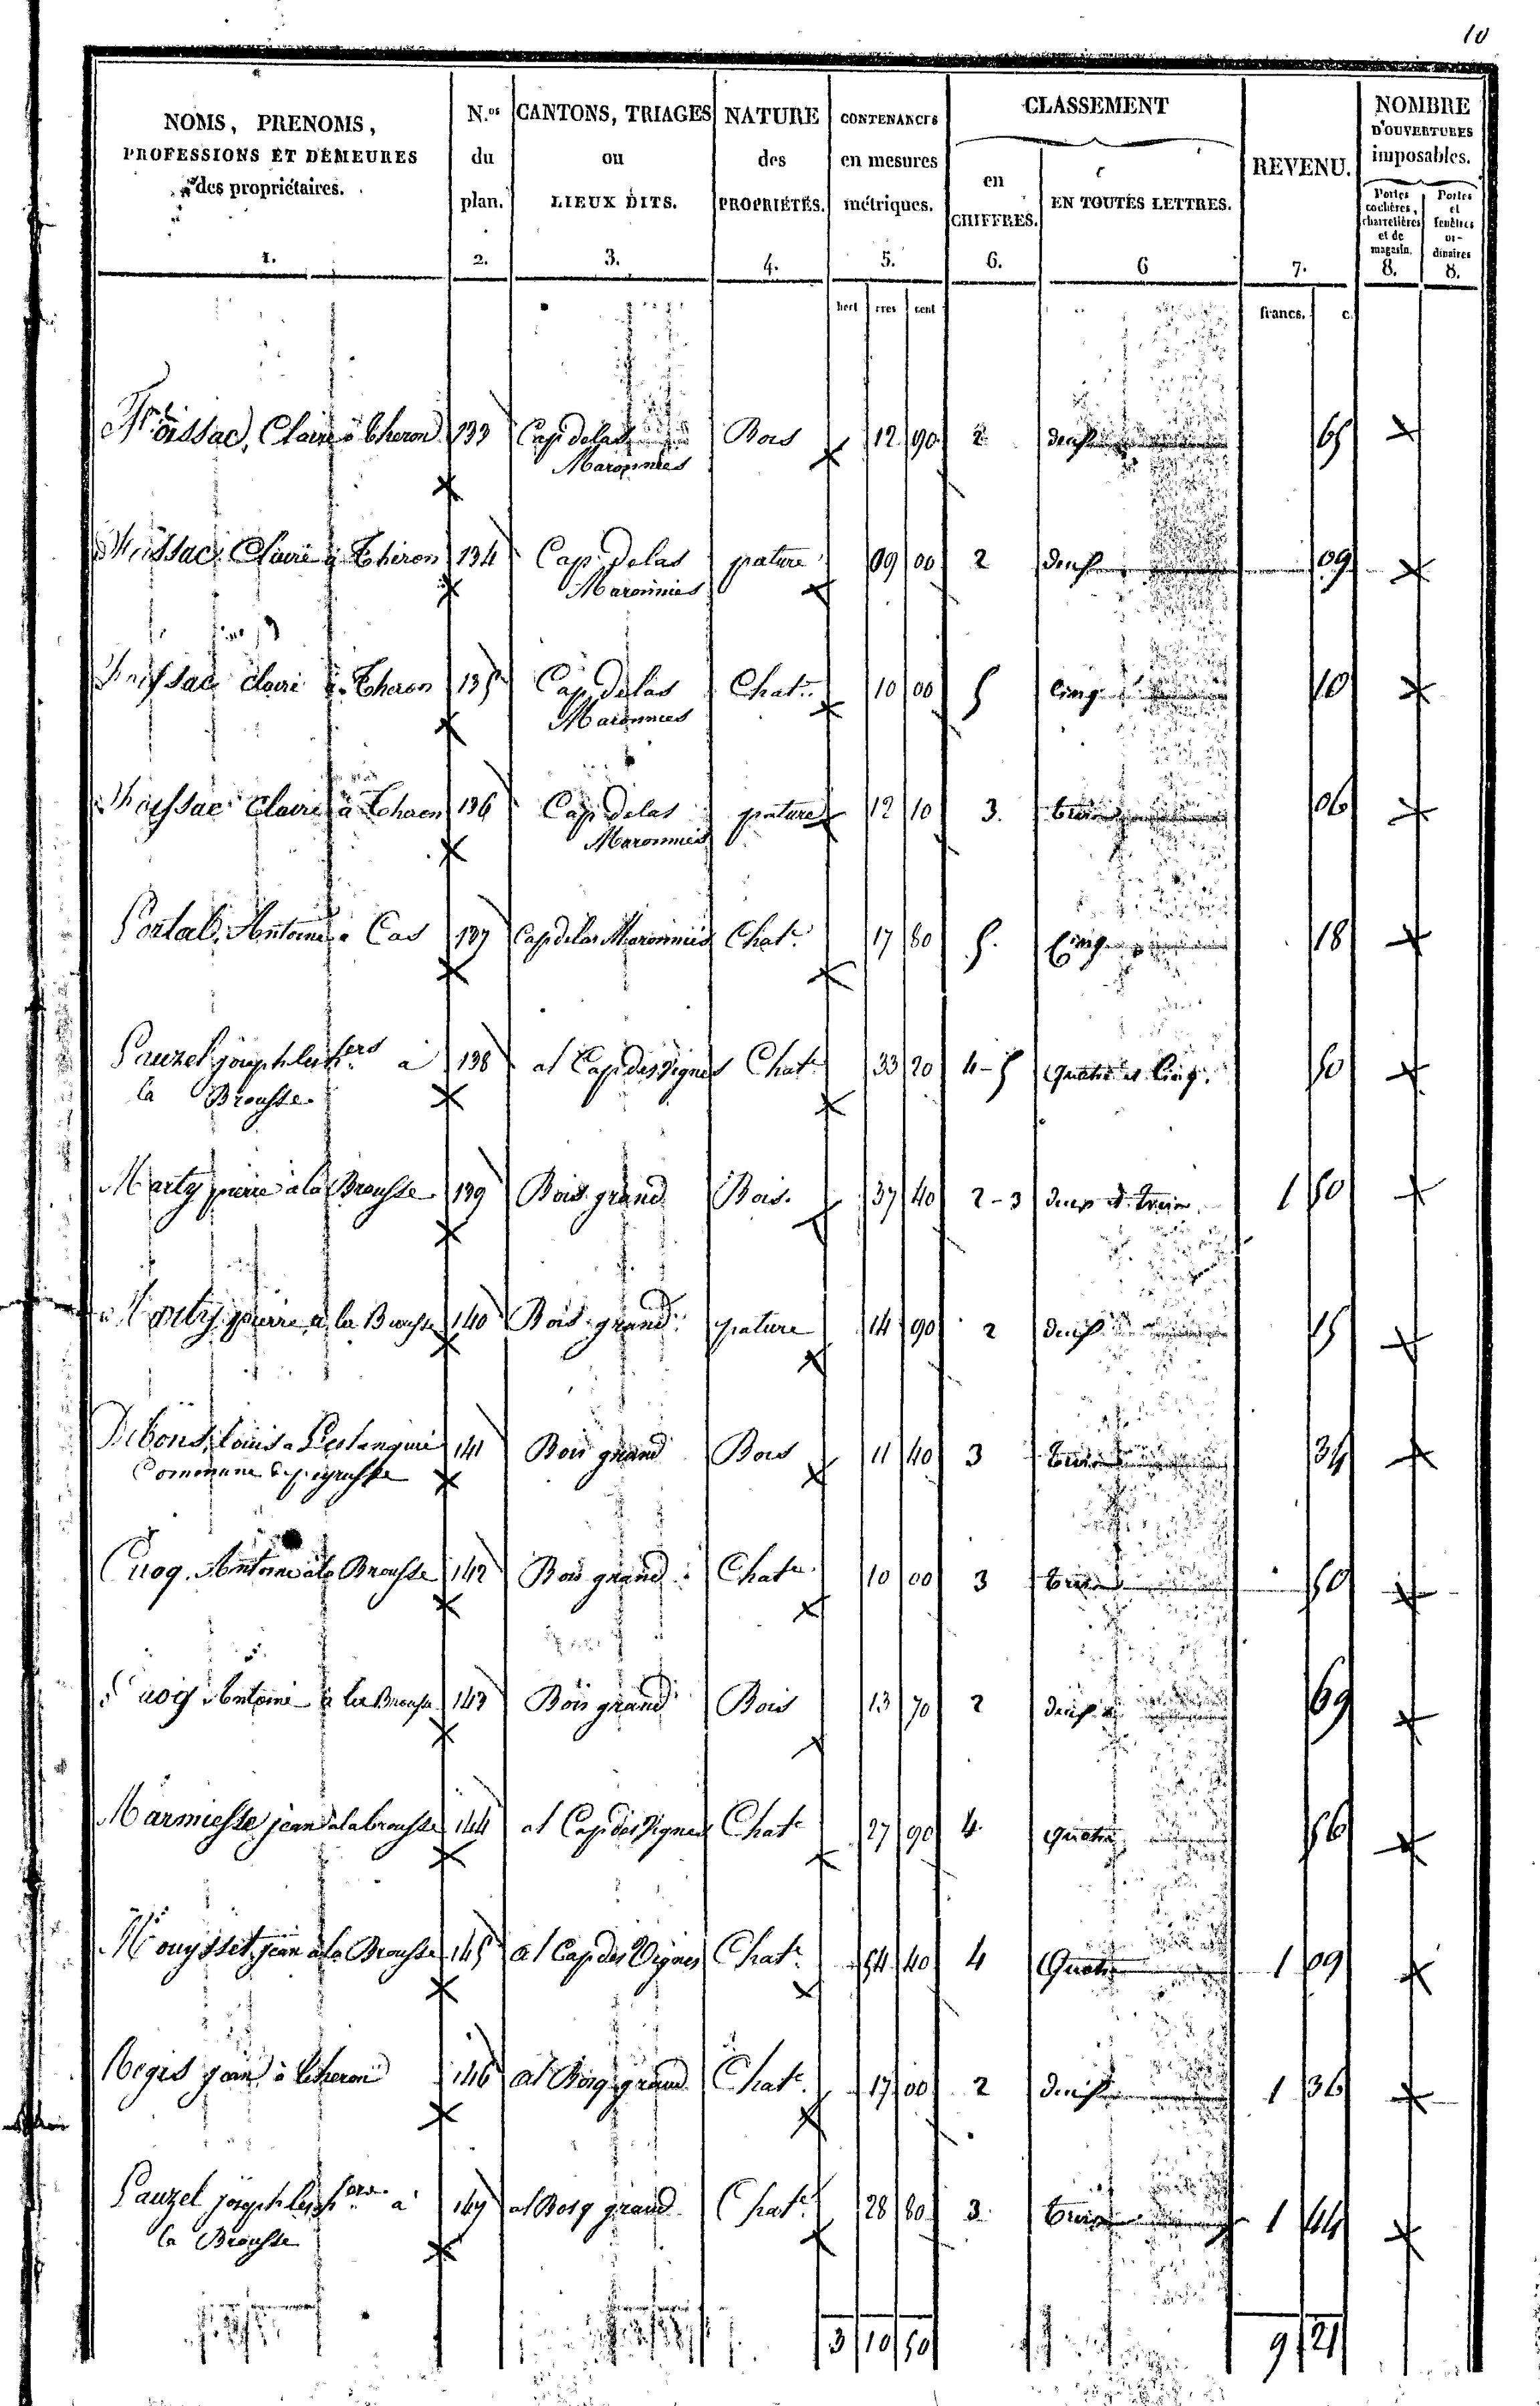 10
NOMS, PRENOMS, PROFESSIONS ET DEMEURES des propriétaires. 1.
N.os du plan. 2.
CANTONS, TRIAGES ou LIEUX DITS. 3.
NATURE des PROPRIÉTÉS. 4.
CONTENANCES en mesures métriques. 5.
CLASSEMENT
en CHIFFRES. 6.
EN TOUTES LETTRES. 6
REVENU. 7.
NOMBRE D'OUVERTURES imposables.
Portes cochères, charretières et de magasin. 8.
Portes et fenêtres ordinaires 8.
hect ares cent francs. c.
Claire à Theron 133 Cap de las Bois 12 90 2 deux 65
Maronnies
Claire à Theron 134 Cap de las pature 09 00 2 deux 09
Maronnies
Claire à Theron 135 Cap de las Chat. 10 00 5 Cinq 10
Maronnies
Claire à Theron 136 Cap de las pature 12 10 3. trois 06
Maronnies
Portal, Antoine a Cas 137 Cap de las Maronnies Chat. 17 80 5. Cinq 18
Pauzel joseph les hers à 138 al Cap des Vignes Chat. 33 20 4-5 Quatre et Cinq. 50
la Brousse
Marty pierre à la Brousse 139 Bois grand Bois. 37 40 2-3 deux et trois 1 50
Marty pierre à la Brousse 140 Bois grand pature 14 90 2 deux 15
Louis a 141 Bois grand Bois 11 40 3 trois 34
Commune de peyrusse
Cuoq Antoine à la Brousse 142 Bois grand Chat. 10 00 3 trois 50
Cuoq Antoine à la Brousse 143 Bois grand Bois 13 70 2 deux 69
Marmiesse jean à la brousse 144 al Cap des Vignes Chat. 27 90 4 quatre 56
Mouysset jean à la Brousse 145 al Cap des Vignes Chat. 54 40 4 Quatre 1 09
Regis jean à letheron 146 al Bosq grand Chat. 17 00 2 deux 1 36
Pauzel joseph les hers à 147 al Bosq grand Chat. 28 80 3 trois 1 44
la Brousse
3 10 50 9 21